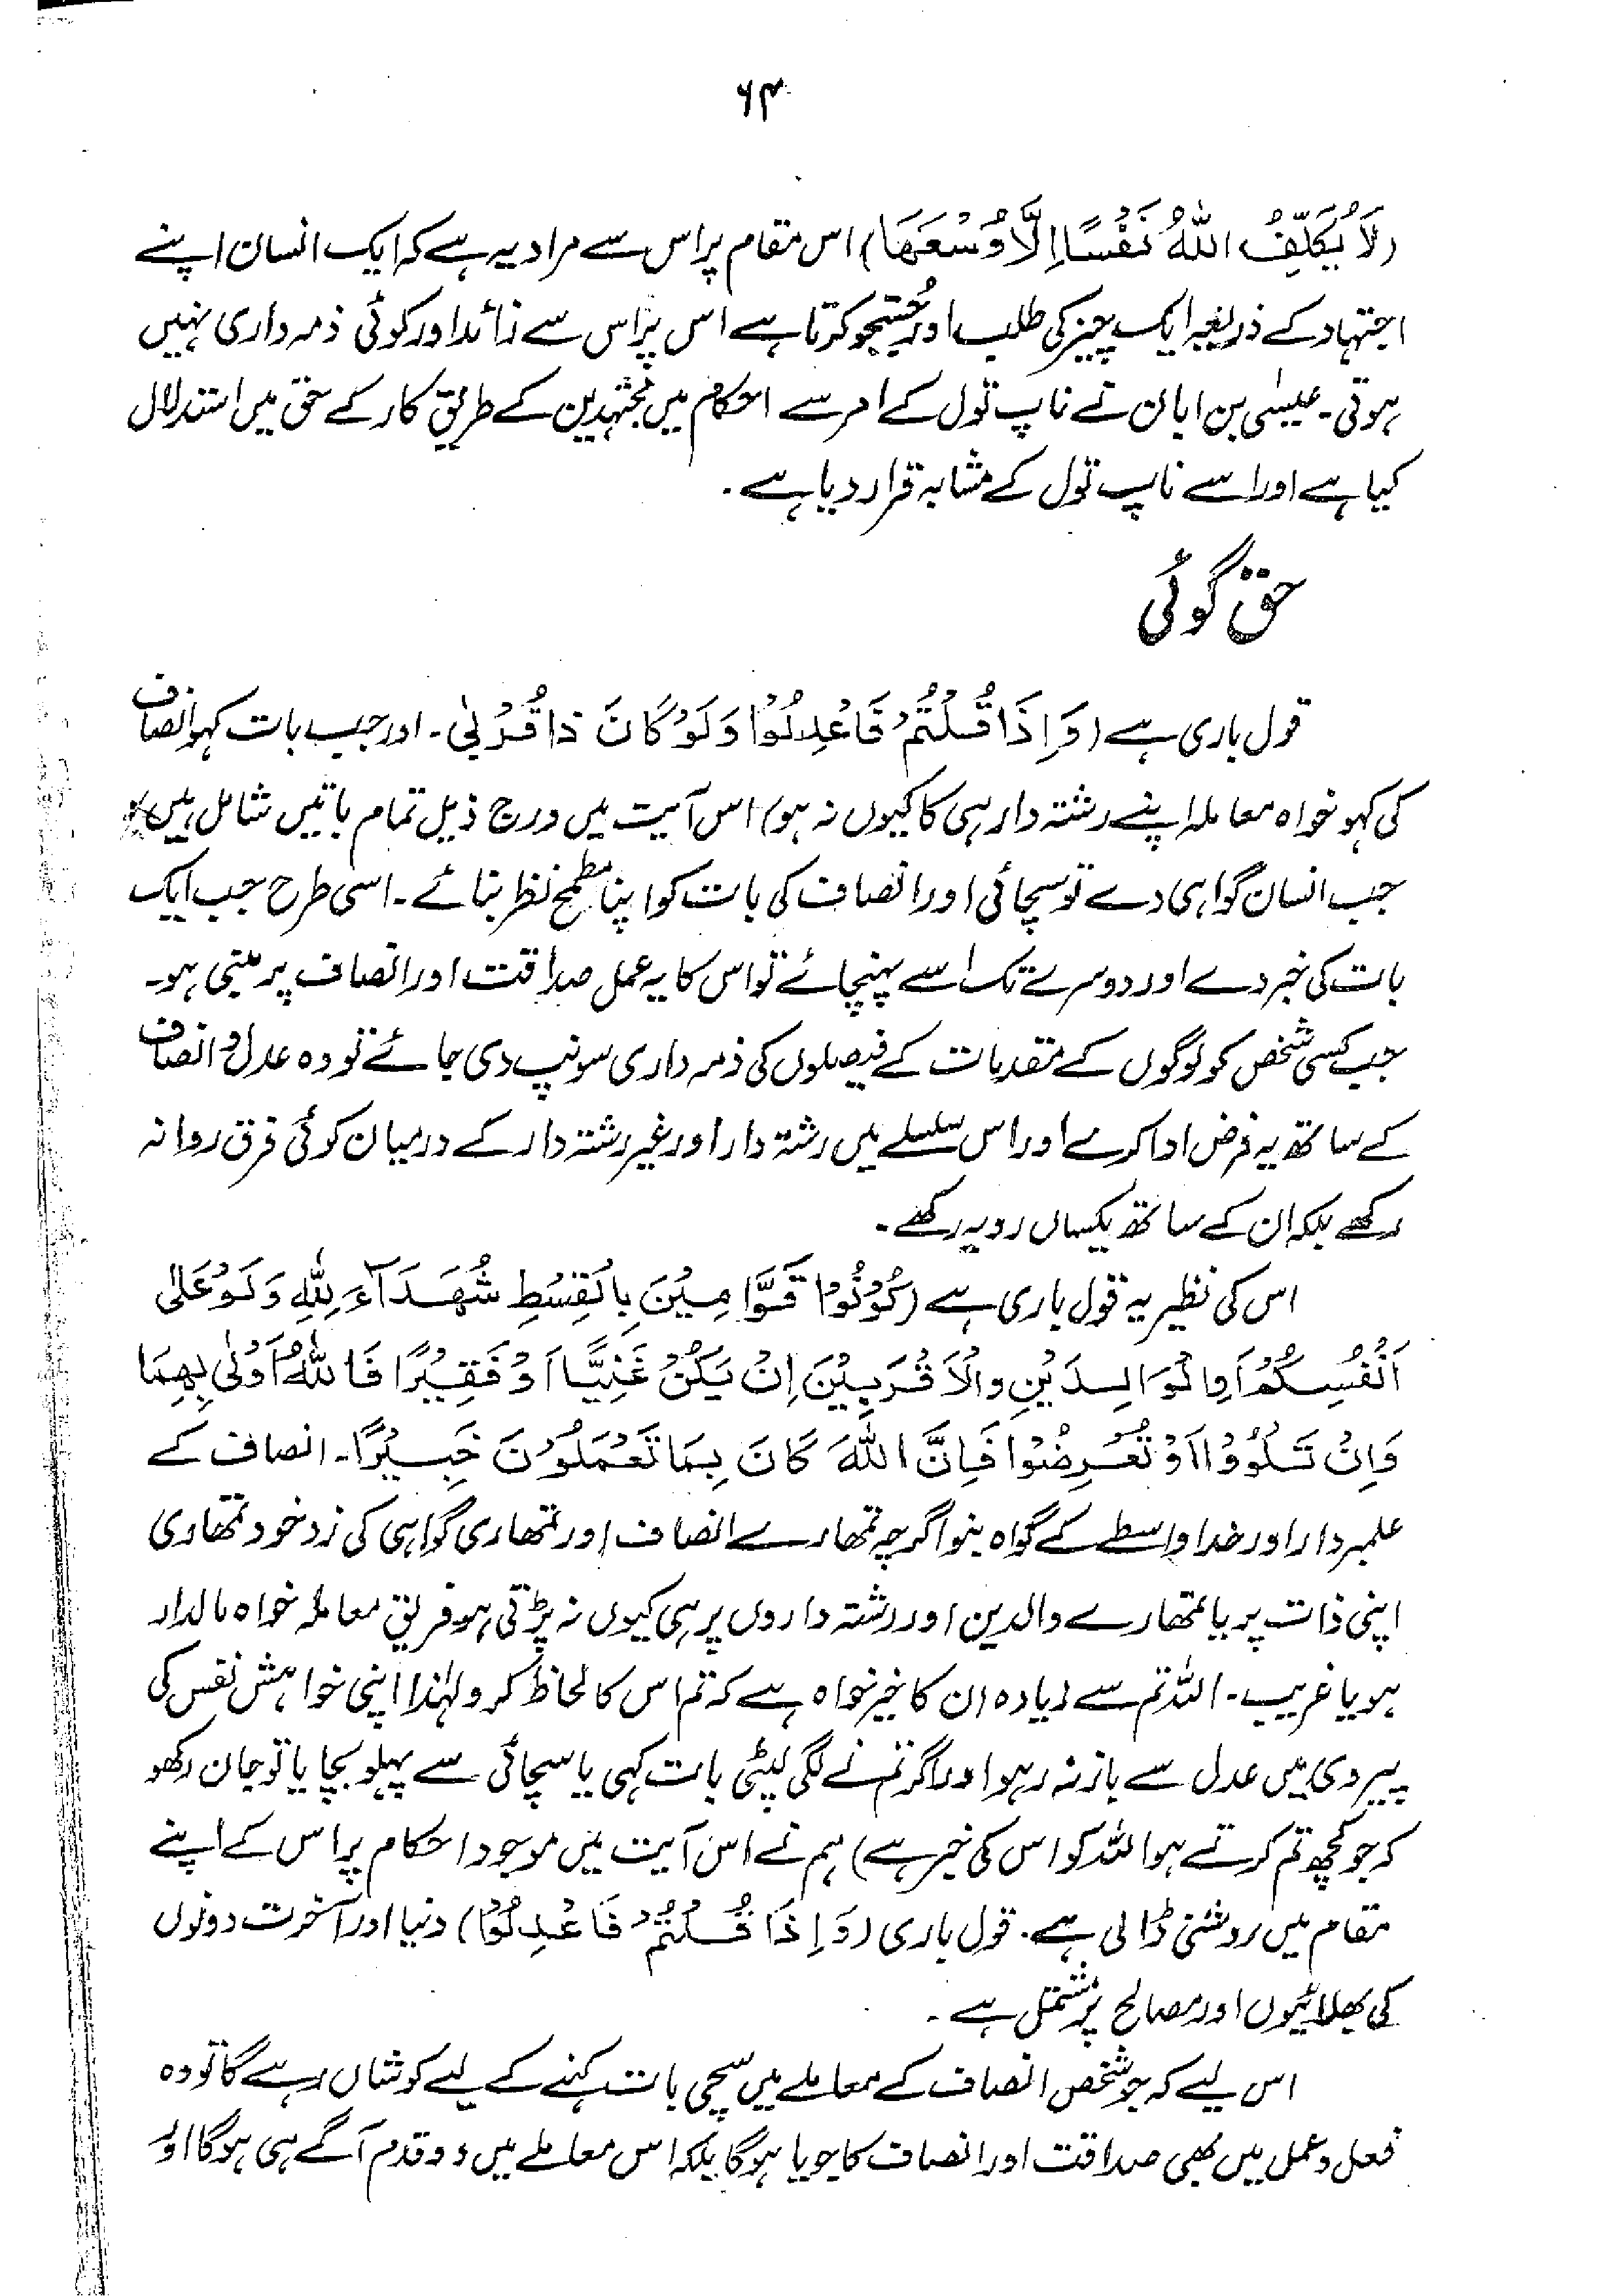 ۶۴
(لَا يُكَلِّفُ اللّٰهُ نَفْسًا اِلَّا وُسْعَهَا) اس مقام پر اس سے مراد یہ ہے کہ ایک انسان اپنے
اجتہاد کے ذریعہ ایک چیز کی طلب اور جستجو کرتا ہے اس پر اس سے زائد اور کوئی ذمہ داری نہیں
ہوتی۔ عیسٰی بن ابان نے ناپ تول کے امر سے احکام میں مجتہدین کے طریق کار کے حق میں استدلال
کیا ہے اور اسے ناپ تول کے مشابہ قرار دیا ہے۔
حق گوئی
قول باری ہے (وَاِذَا قُلْتُمْ فَاعْدِلُوْا وَلَوْ كَانَ ذَا قُرْبٰی۔ اور جب بات کہو انصاف
کی کہو خواہ معاملہ اپنے رشتہ دار ہی کا کیوں نہ ہو) اس آیت میں درج ذیل تمام باتیں شامل ہیں
جب انسان گواہی دے تو سچائی اور انصاف کی بات کو اپنا مطمح نظر بنائے۔ اسی طرح جب ایک
بات کی خبر دے اور دوسرے تک اسے پہنچائے تو اس کا یہ عمل صداقت اور انصاف پر مبنی ہو۔
جب کسی شخص کو لوگوں کے مقدمات کے فیصلوں کی ذمہ داری سونپ دی جائے تو وہ عدل و انصاف
کے ساتھ یہ فرض ادا کرے اور اس سلسلے میں رشتہ دار اور غیر رشتہ دار کے درمیان کوئی فرق روا نہ
رکھے بلکہ ان کے ساتھ یکساں رویہ رکھے۔
اس کی نظیر یہ قول باری ہے (كُوْنُوْا قَوَّامِيْنَ بِالْقِسْطِ شُهَدَآءَ لِلّٰهِ وَلَوْ عَلٰى
اَنْفُسِكُمْ اَوِ الْوَالِدَيْنِ وَالْاَقْرَبِيْنَ اِنْ يَكُنْ غَنِيًّا اَوْ فَقِيْرًا فَاللّٰهُ اَوْلٰى بِهِمَا
وَاِنْ تَلْوُوْا اَوْ تُعْرِضُوْا فَاِنَّ اللّٰهَ كَانَ بِمَا تَعْمَلُوْنَ خَبِيْرًا۔ انصاف کے
علمبردار اور خدا واسطے کے گواہ بنو اگرچہ تمھارے انصاف اور تمھاری گواہی کی زد خود تمھاری
اپنی ذات پر یا تمھارے والدین اور رشتہ داروں پر ہی کیوں نہ پڑتی ہو فریق معاملہ خواہ مالدار
ہو یا غریب۔ اللہ تم سے زیادہ ان کا خیر خواہ ہے کہ تم اس کا لحاظ کرو لہٰذا اپنی خواہش نفس کی
پیروی میں عدل سے باز نہ رہو اور اگر تم نے لگی لپٹی بات کہی یا سچائی سے پہلو بچایا تو جان رکھو
کہ جو کچھ تم کرتے ہو اللہ کو اس کی خبر ہے) ہم نے اس آیت میں موجود احکام پر اس کے اپنے
مقام میں روشنی ڈالی ہے۔ قول باری (وَاِذَا قُلْتُمْ فَاعْدِلُوْا) دنیا اور آخرت دونوں
کی بھلائیوں اور مصالح پر مشتمل ہے۔
اس لیے کہ جو شخص انصاف کے معاملے میں سچی بات کہنے کے لیے کوشاں رہے گا تو وہ
فعل و عمل میں بھی صداقت اور انصاف کا جویا ہوگا بلکہ اس معاملے میں دو قدم آگے ہی ہوگا اور